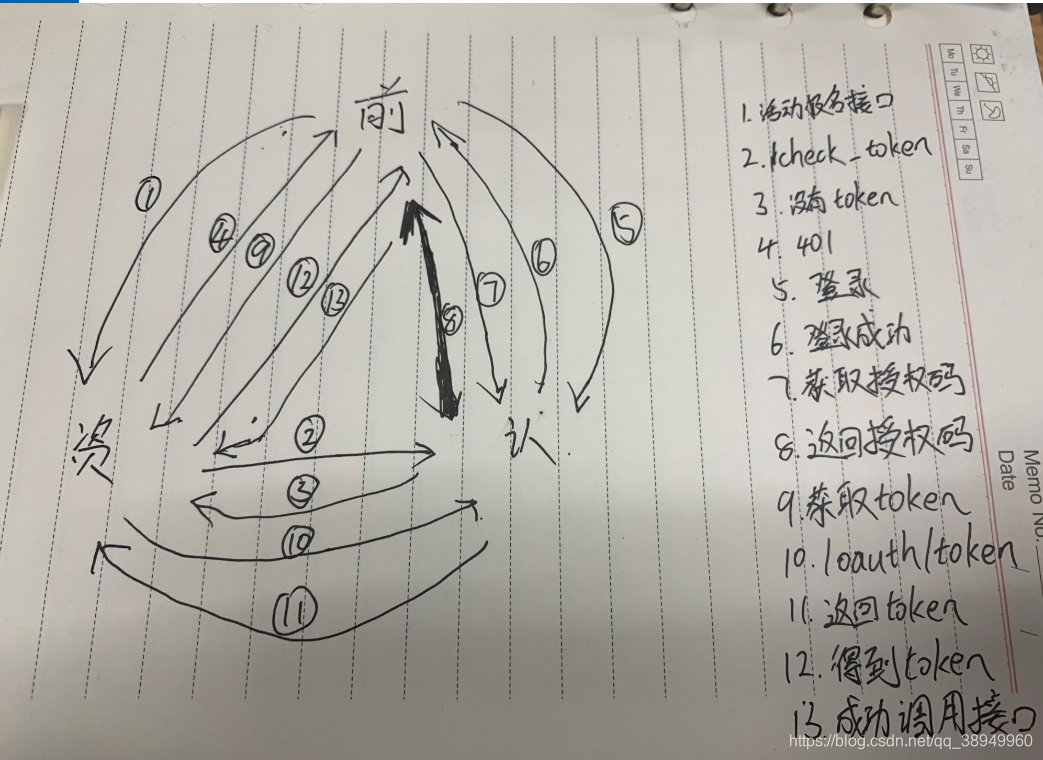 前
资
认
①
④
⑨
⑫
⑬
⑧
⑦
⑥
⑤
②
③
⑩
⑪
1. 活动报名接口
2. /check_token
3. 没有token
4. 401
5. 登录
6. 登录成功
7. 获取授权码
8. 返回授权码
9. 获取token
10. /oauth/token
11. 返回token
12. 得到token
13. 成功调用接口
Mo
Tu
We
Th
Fr
Sa
Su
Memo No.
Date
https://blog.csdn.net/qq_38949960